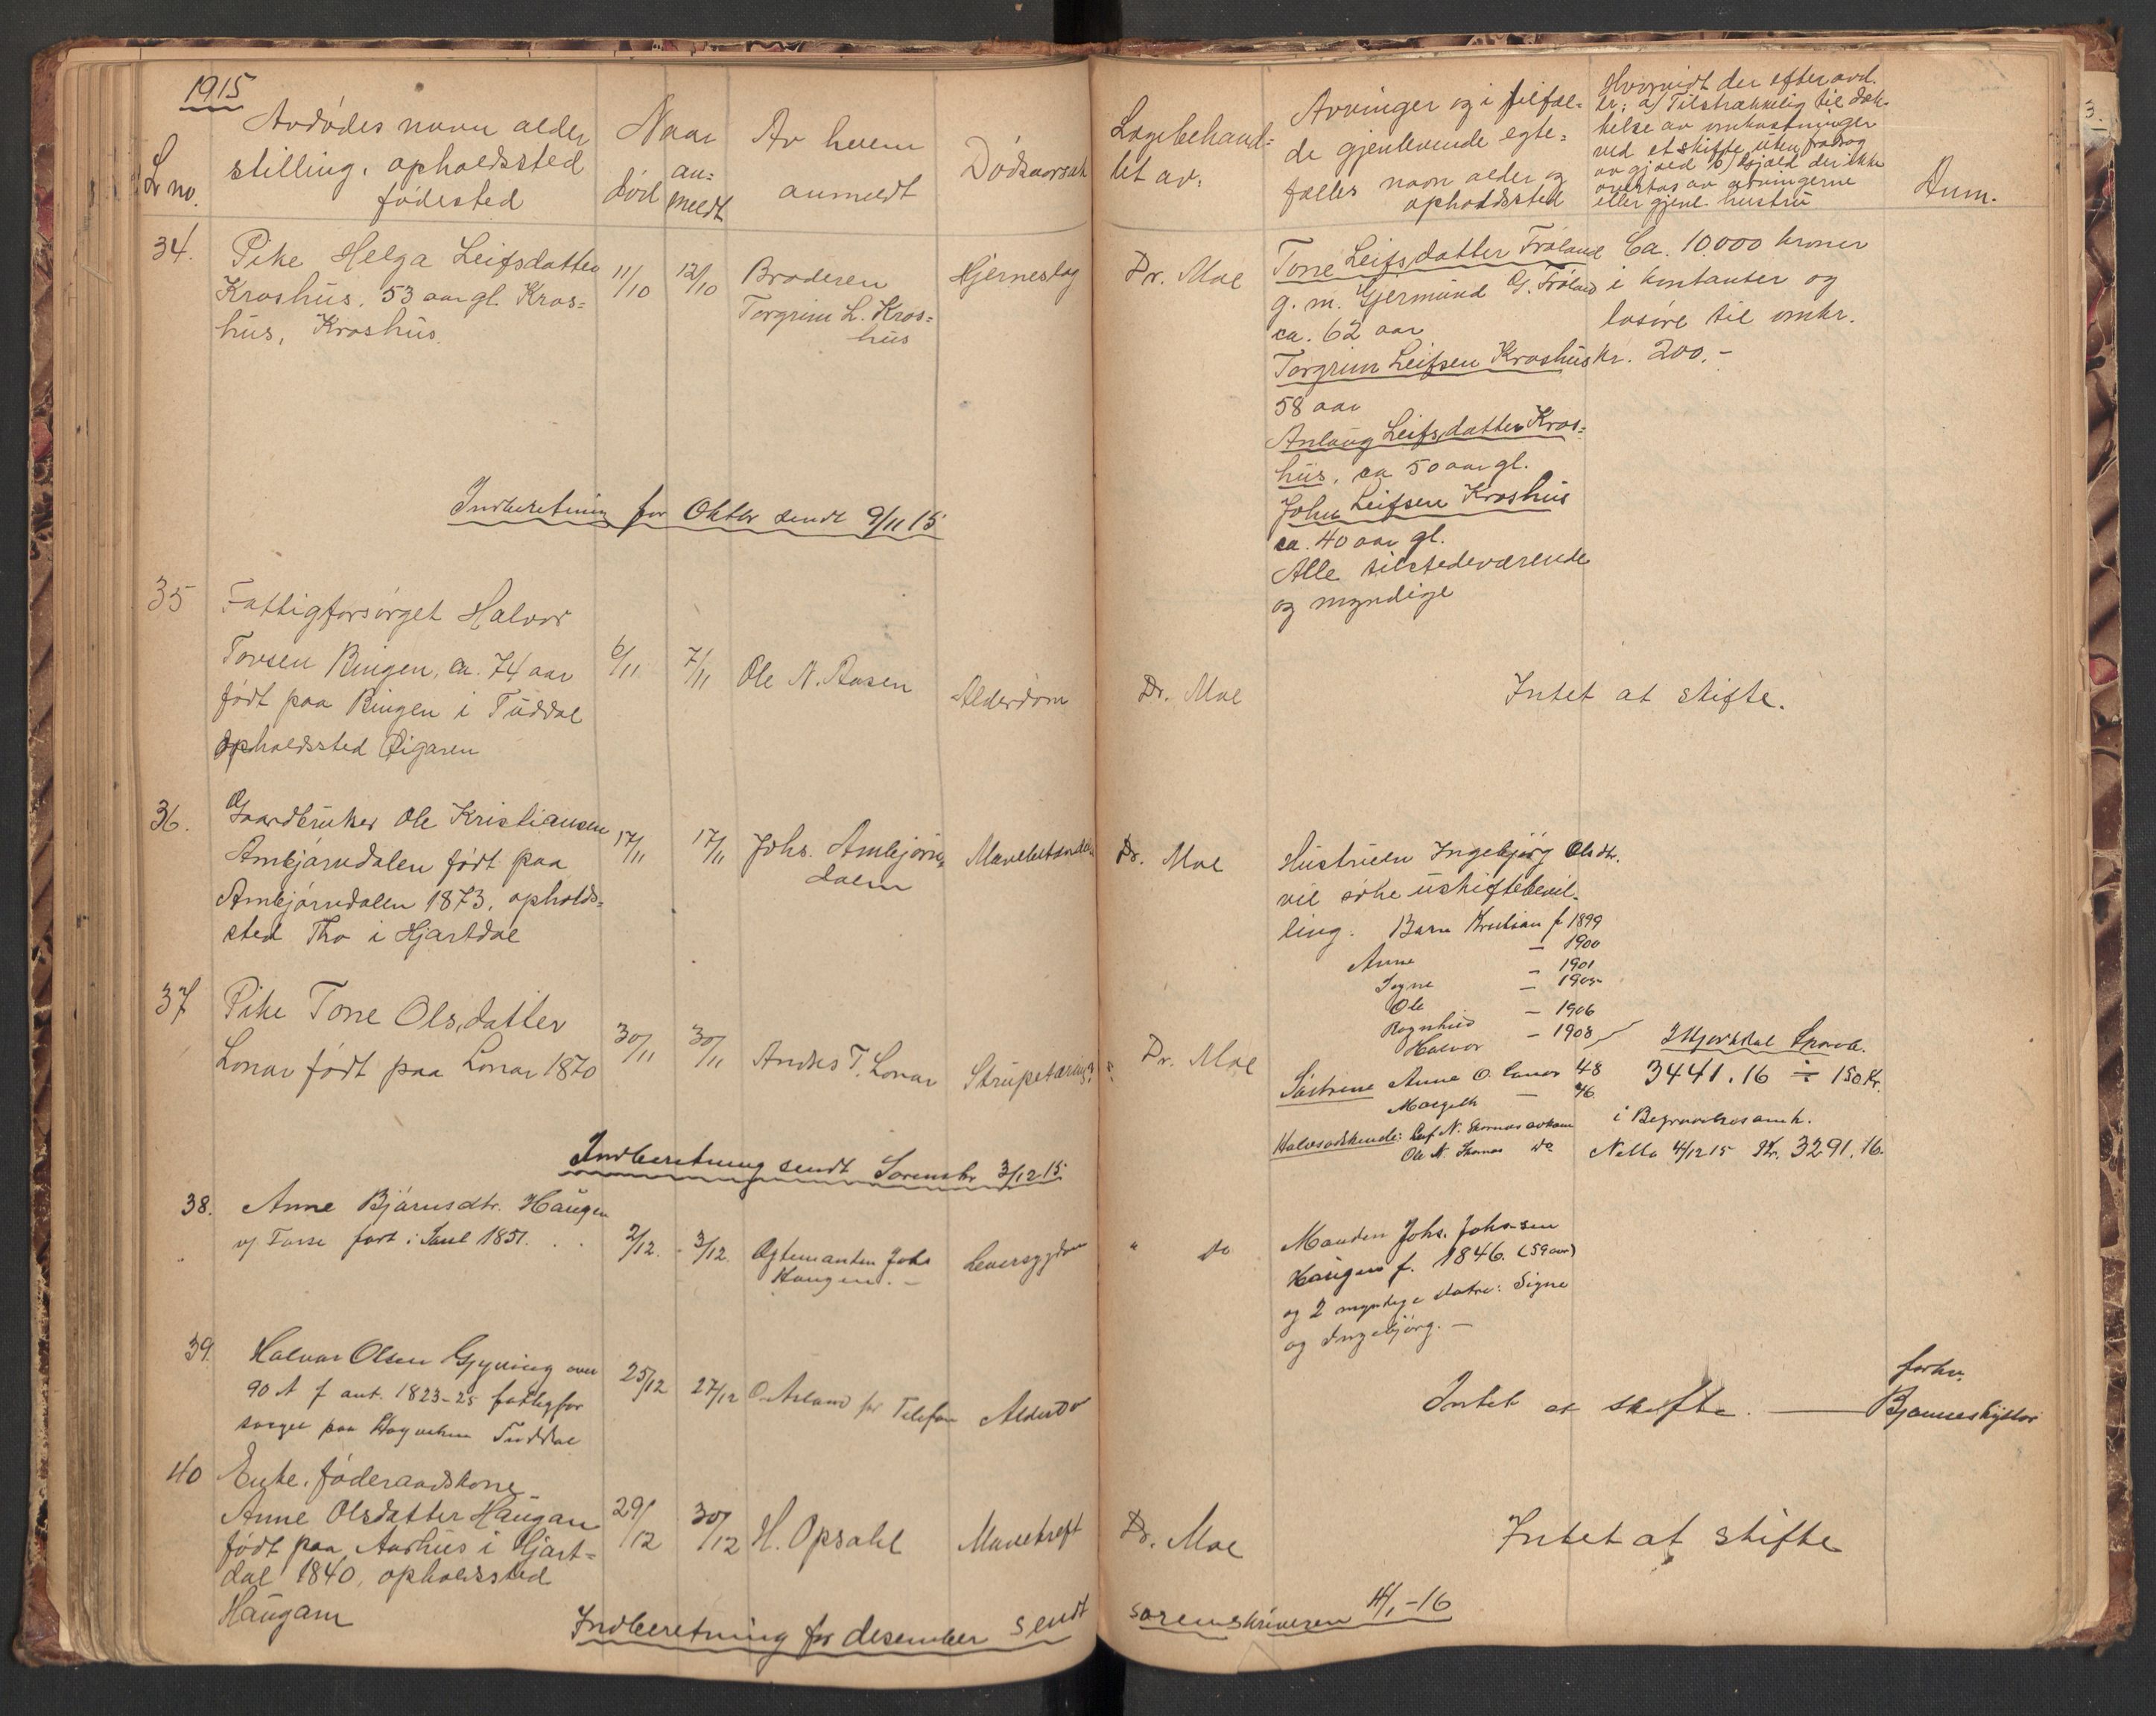 1915
L no.
Avdödes navn alder
stilling, opholdssted
födested
Naar
död
an=
meldt
Av hvem
anmeldt
Dödsaarsak
Lægebehand=
let av:
Arvinger og i tilfæl=
de gjenlevende egte=
fælles navn alder og
opholdssted
Hvorvidt der efter avd.
er: a) Tilstrækkelig til dæk-
kelse av omkostninger
ved et skifte uten fradrag
av gjæld b) Gjæld der ikke
overtas av arvingerne
eller gjenl. hustru
Anm.
34.
Pike Helga Leifsdatter
Kroshus, 53 aar gl. Kros=
hus, Kroshus.
11/10
12/10
Broderen
Torgrim L. Kros=
hus
Hjerneslag
Dr. Moe
Tone Leifsdatter Fröland
g. m. Gjermund G. Fröland
ca. 62 aar
Torgrim Leifsen Kroshus
58 aar
Anlaug Leifsdatter Kros=
hus, ca 50 aar gl.
John Leifsen Kroshus
ca. 40 aar gl.
Alle tilstedeværende
og myndige
Ca. 10.000 kroner
i kontanter og
lösöre til omkr.
kr. 200.-
Indberetning for Oktbr sendt 9/11 15
35
Fattigforsörget Halvor
Torsen Bingen, ca. 74 aar
födt paa Bingen i Tuddal
opholdssted Öigaren
6/11
7/11
Ole N. Aasen
Alderdom
Dr. Moe
Intet at skifte.
36.
Gaardbruker Ole Kristiansen
Ambjörndalen födt paa
Ambjörndalen 1873, opholds=
sted Tho i Hjartdal
17/11
17/11
Johs. Ambjörn=
dalen
Dr. Moe
Hustruen Ingebjörg Olsdtr.
vil söke uskiftebevil-
ling. Barn Kristian f 1899
Anne – 1900
Signe – 1901
Ole – 1905
Ragnhild – 1906
Halvor – 1908
37
Pike Tone Olsdatter
Lonar födt paa Lonar 1870
30/11
30/11
Andres T. Lonar
Strupetæring
Dr. Moe
Söstrene Anne O. Lonar 48
Margith – 46
Halvsödskende: Leif N. avkom
Ole N. do
I Hjartdal Spareb.
3441.16 ÷ 150 Kr.
i Begravelsesomk.
Netto 4/12 15 Kr. 3291.16.
Indberetning sendt Sorenskr 3/12 15
38.
Anne Björnsdtr. Haugen
födt i Sauland 1851.
2/12.
3/12
Egtemanden Johs
Haugen. –
Leversygdom
" do
Manden Johs. Johnsen
Haugen f. 1846. (59 aar)
og 2 myndige døtre: Signe
og Ingebjörg. –
39.
Halvor Olsen Gjyving over
90 A f ant. 1823-25 fattigfor
sörget paa Tuddal
25/12
27/12
O. Aaland pr Telefon
Alderd
Intet at skifte. –
forhv.
40
Enke, föderaadskone
Anne Olsdatter Haugan
födt paa Aarhus i Hjart=
dal 1840, opholdssted
Haugan
29/12
30/12
H. Opsahl
Mavekreft
Dr. Moe
Intet at skifte
Indberetning for desember sendt sorenskriveren 14/1-16